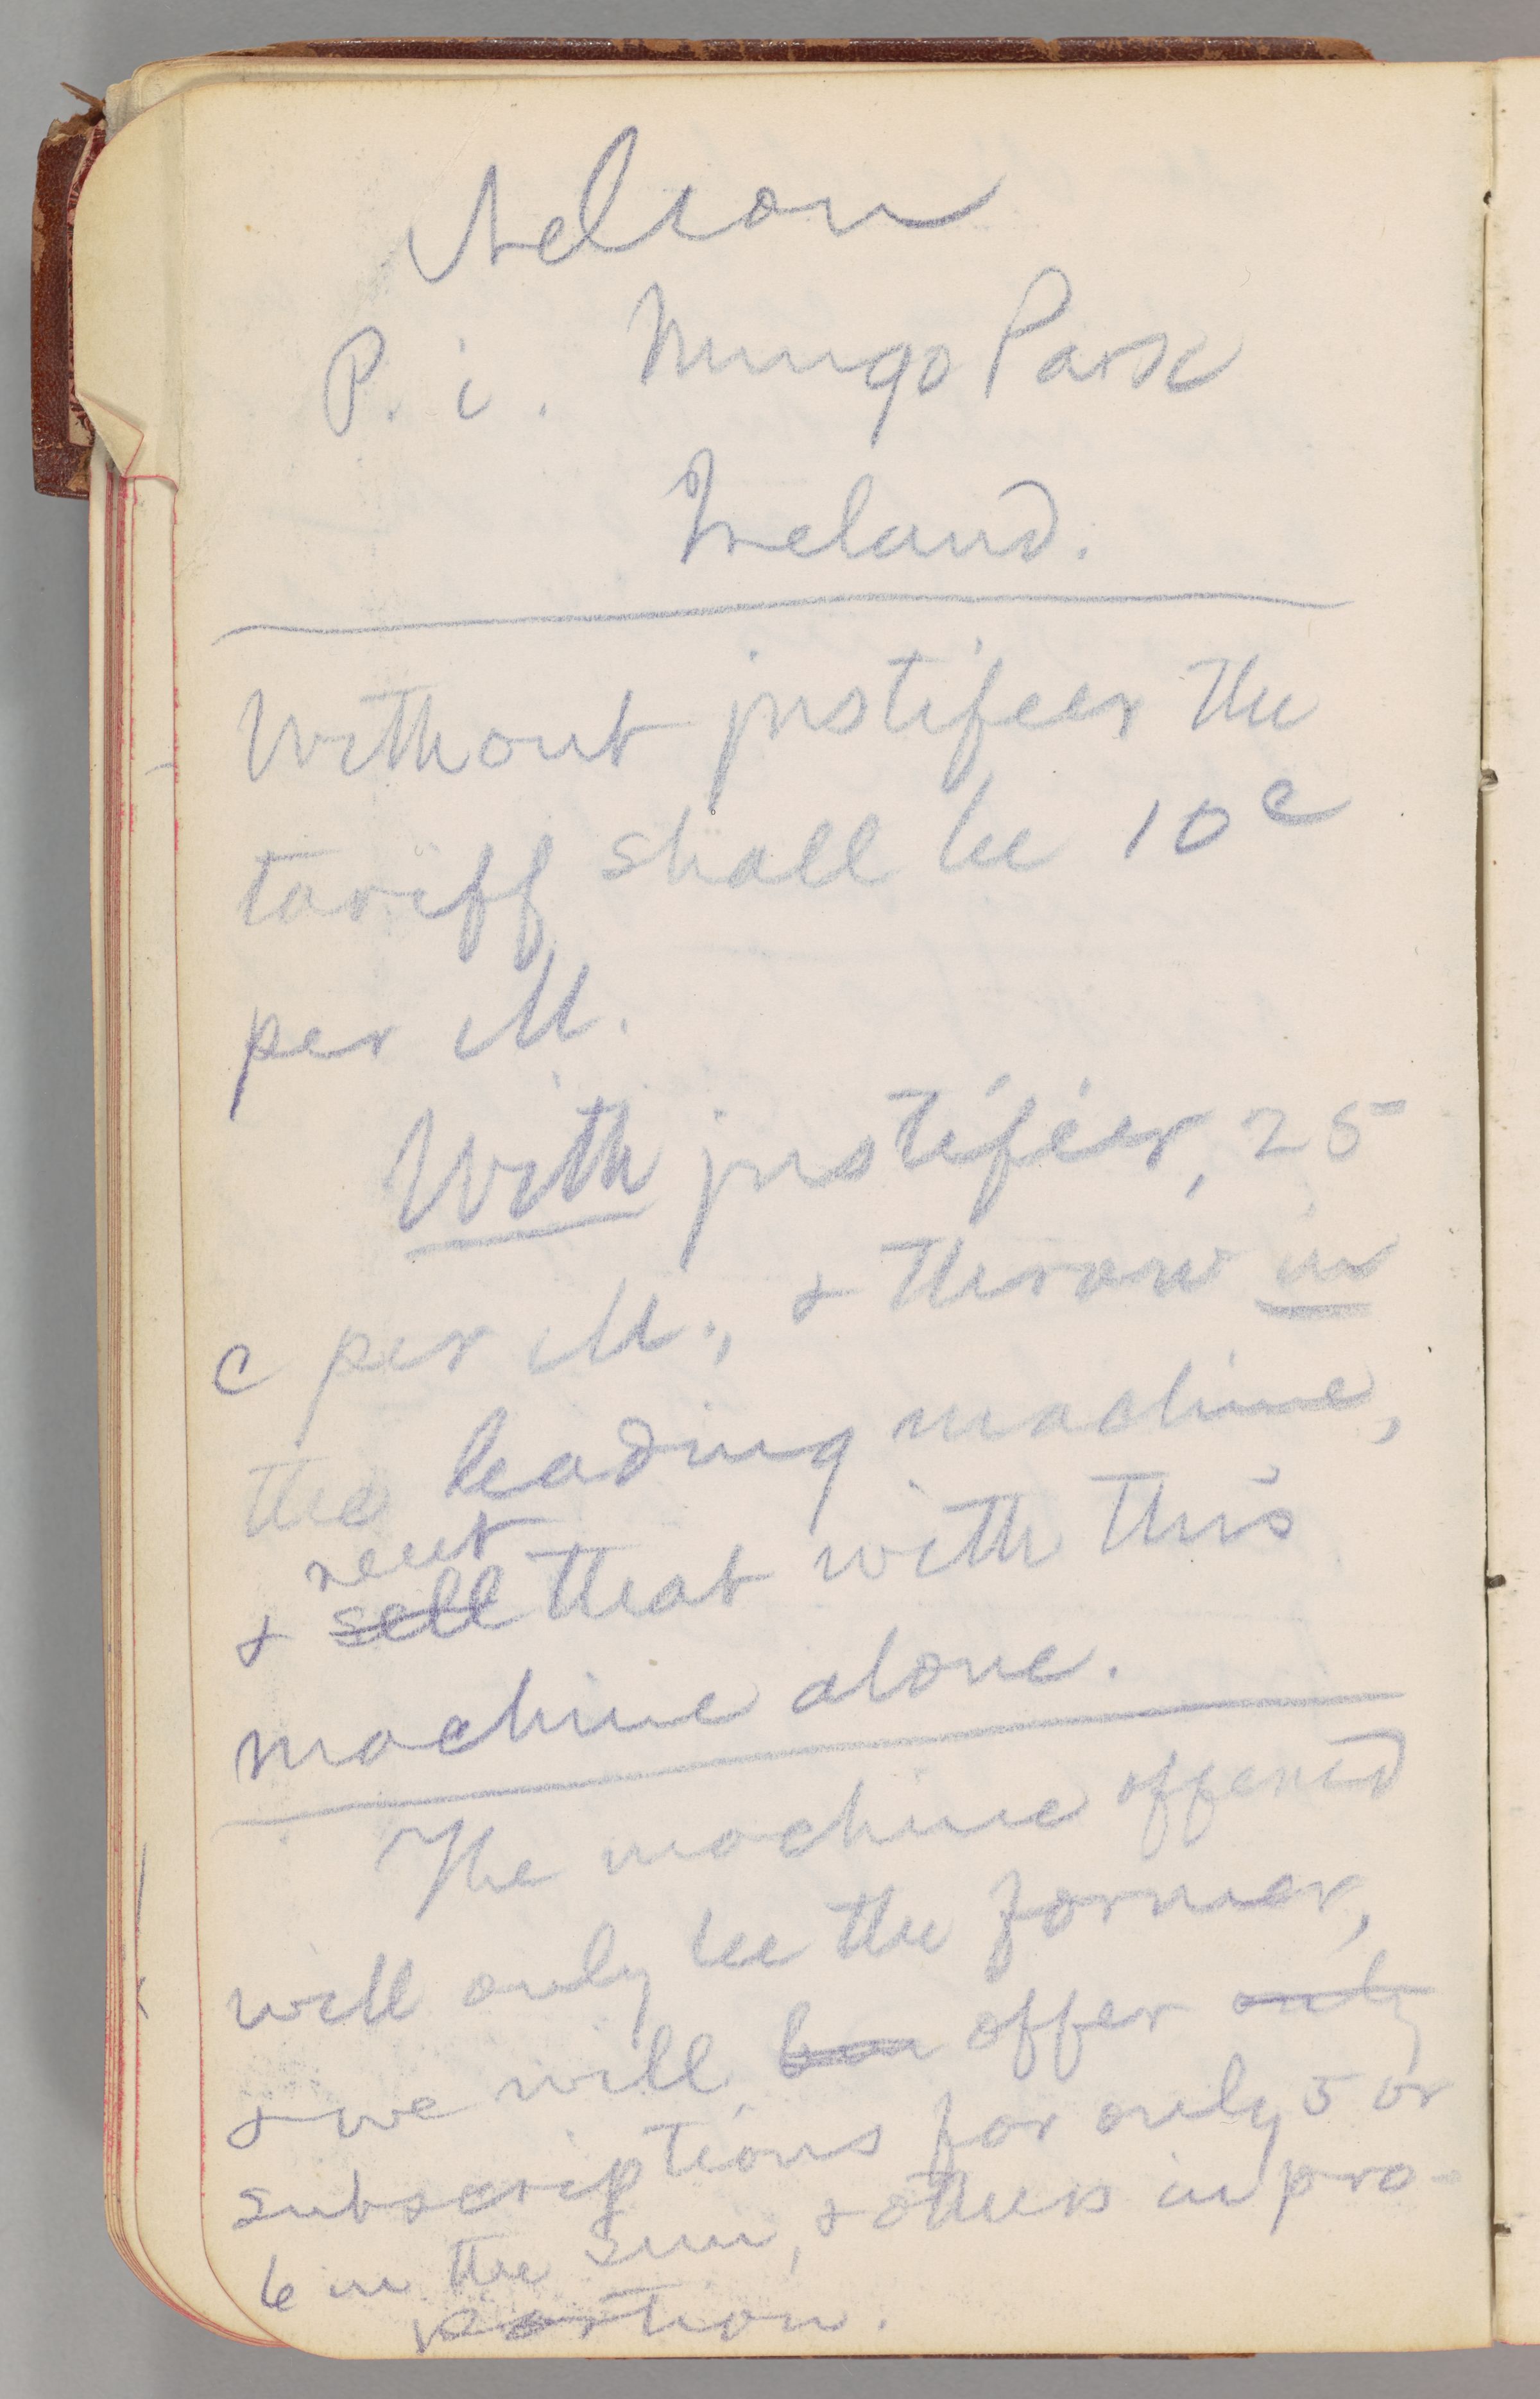 Nelson
P. i. Mungo Park
Ireland.
Without justifier the
tariff shall be 10c
per M.
With justifier, 25
c per M., & throw in
the leading machine,
rent
& sell that with this
machine alone.
The machine offered
will only be the former,
& we will offer only
subscriptions for only 5 or
6 in the Sun, & others in pro-
portion.